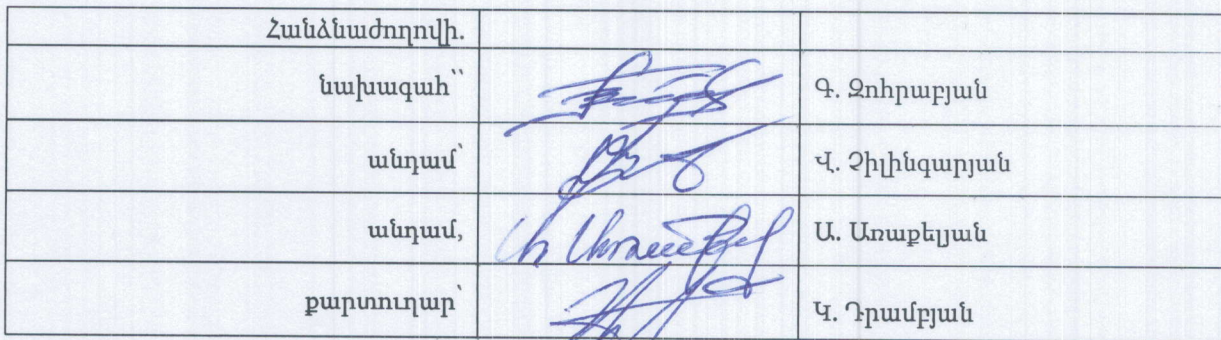 Հանձնաժողովի.
նախագահ՝՝ Գ. Զոհրաբյան
անդամ՝ Վ. Չիլինգարյան
անդամ, Ա. Առաքելյան
քարտուղար՝ Կ. Դրամբյան